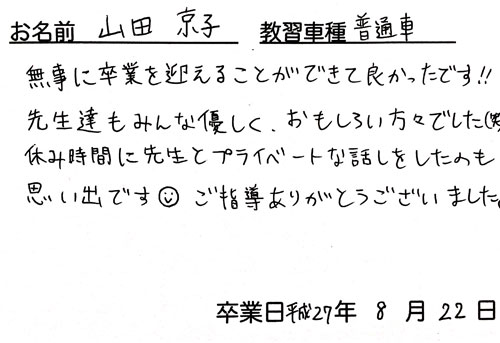 お名前 山田 京子 教習車種 普通車
無事に卒業を迎えることができて良かったです!!
先生達もみんな優しく、おもしろい方々でした(笑
休み時間に先生とプライベートな話しをしたのも
思い出です☺ ご指導ありがとうございました。
卒業日平成27年 8 月 22 日